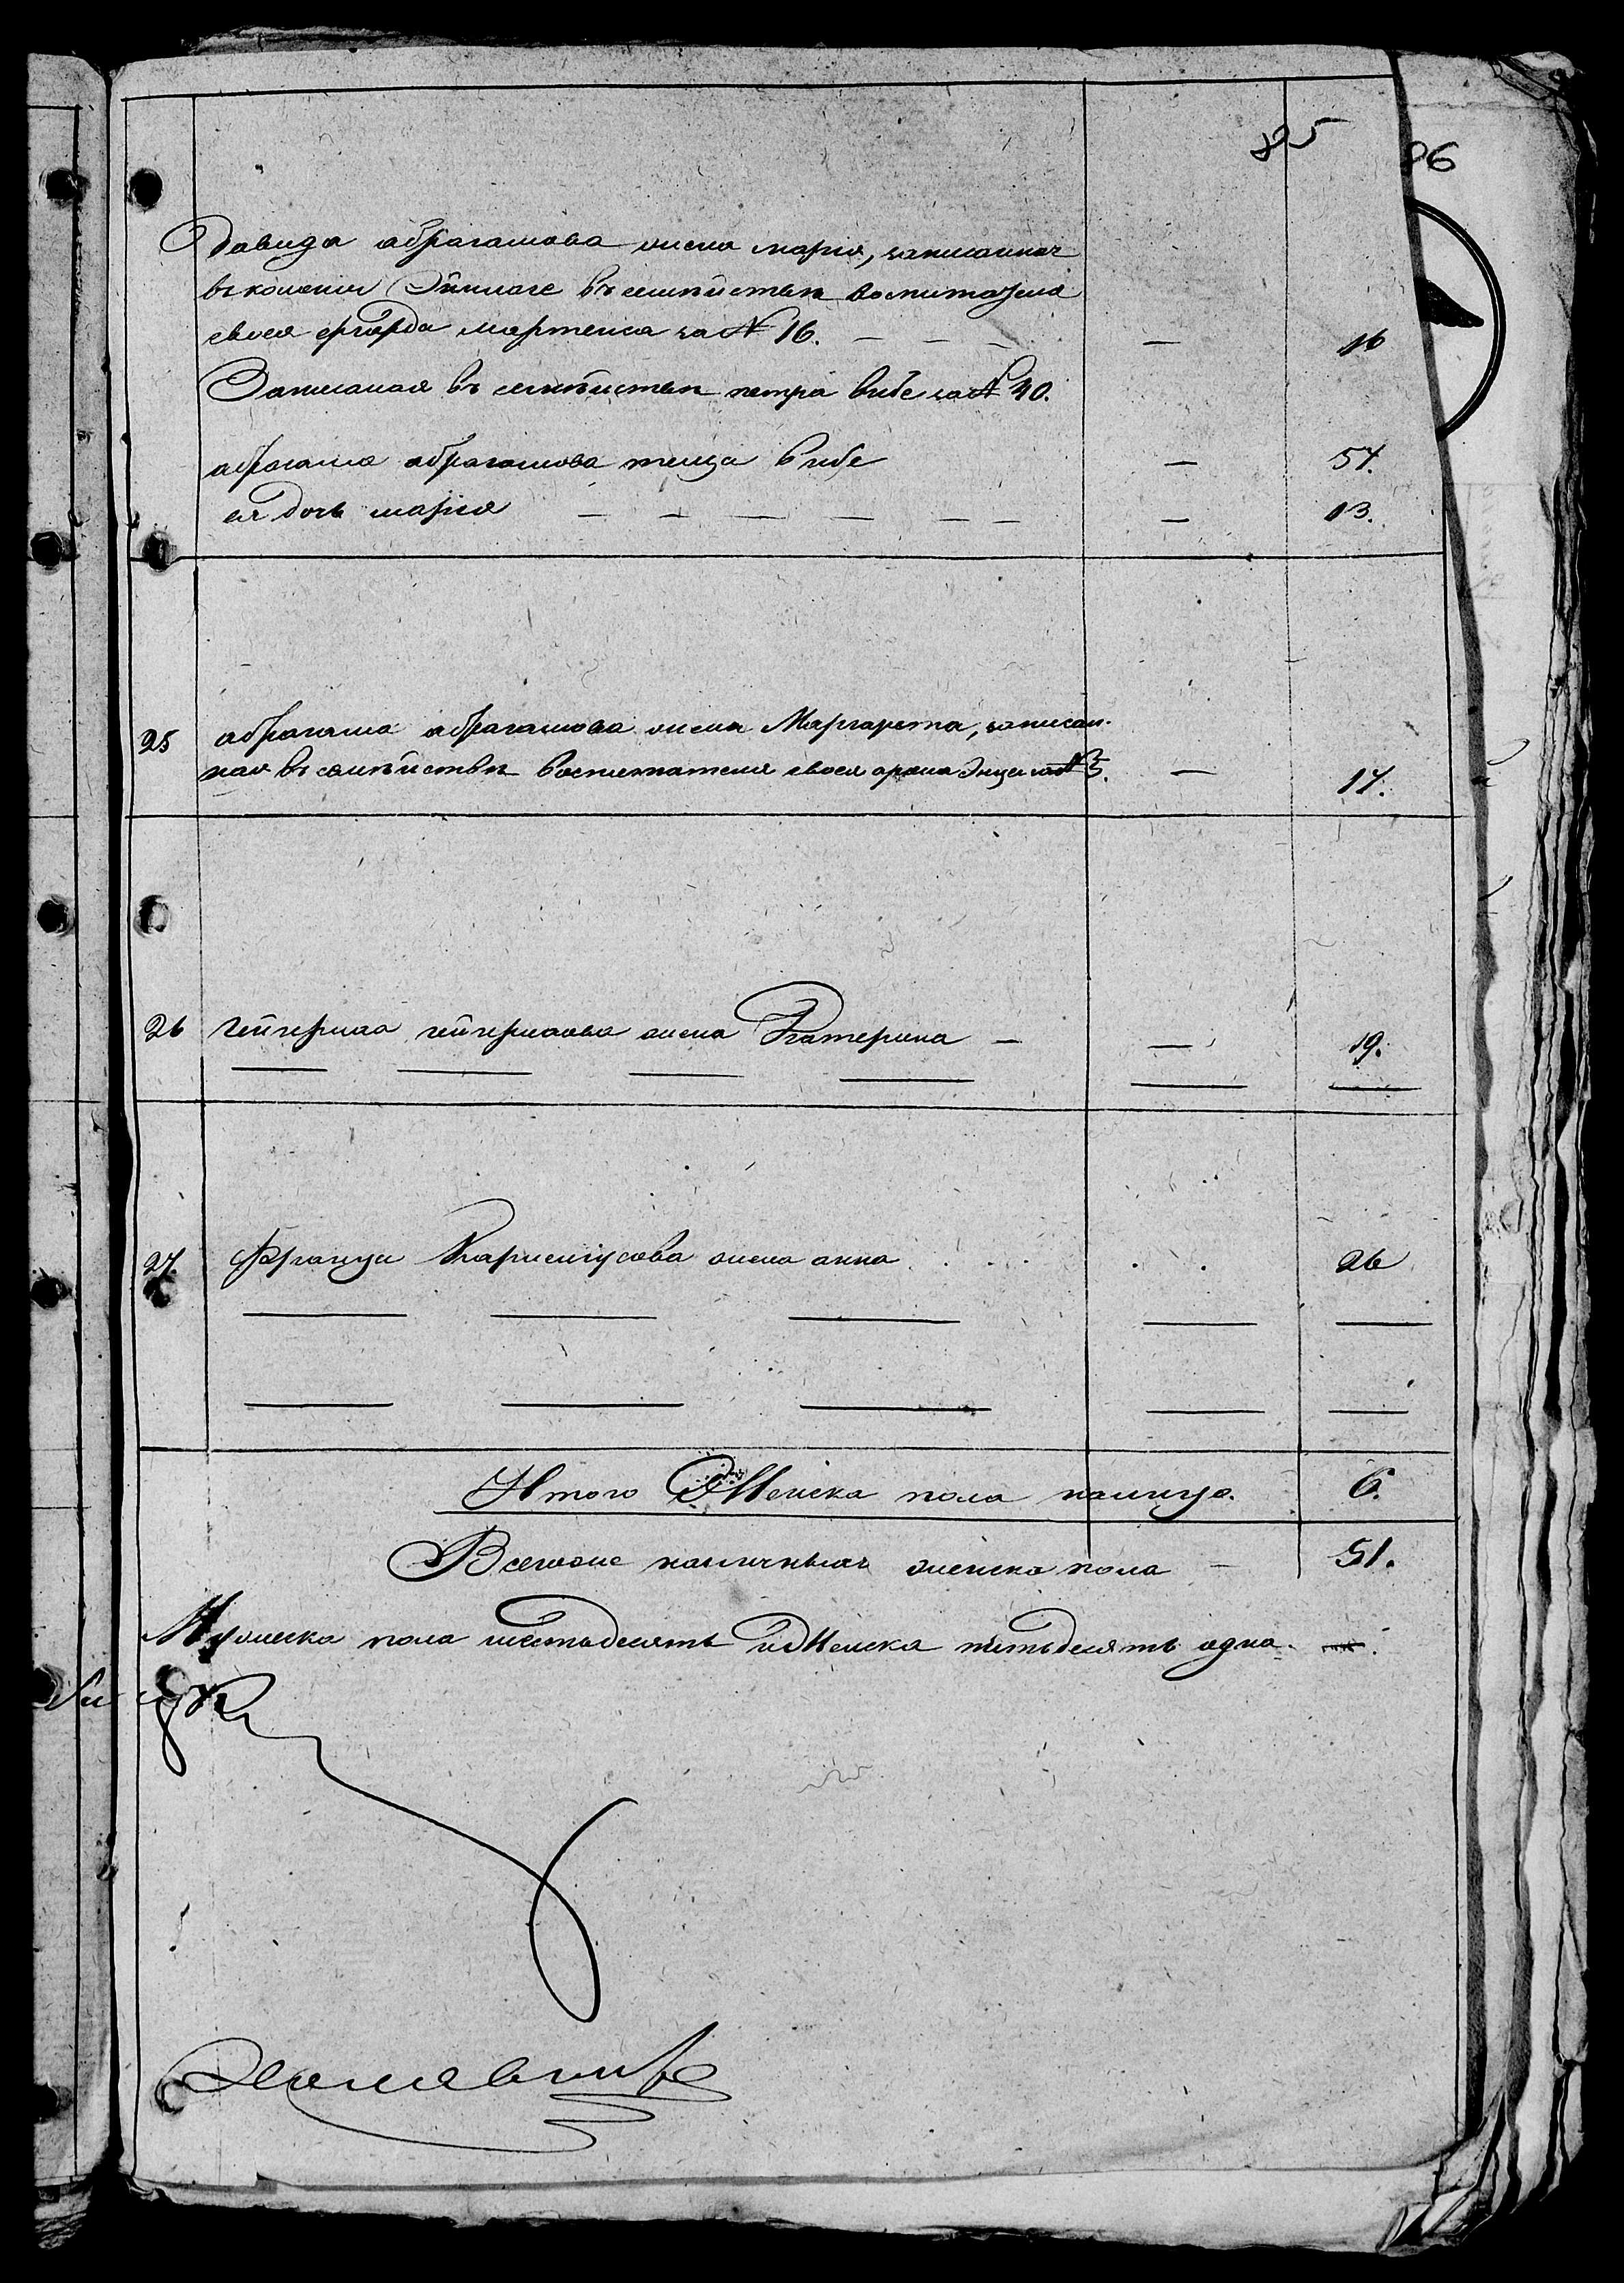 85
86
Давида абрагамова жена мария, записанная
въ колоніи Эйнлаге въ семѣйствѣ воспитателя
своея Мартенса за № 16. — — — — 16
Записаная въ семѣйствѣ петра вибе за № 40.
абрагама абрагамова теща вибе — 57.
ея дочь марія — — — — — — — 13.
25 абрагама абрагамова жена Маргарета, записан-
ная въ семѣйствѣ воспитателя своея Энца за № 5. — 17.
26 гейнриха гейнрихова жена Катерина — — 19.
27. Франца жена анна . . . . . 26
Итого Женска пола налицо. 6.
Всегоже наличныхъ женска пола — 51.
Мужеска пола шестьдесятъ и Женска пятьдесятъ одна.